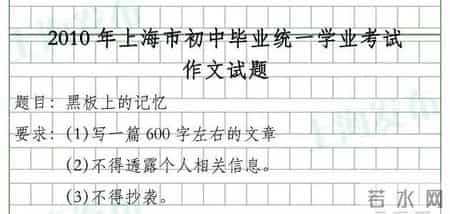 2010年上海市初中毕业统一学业考试
作文试题
题目：黑板上的记忆
要求：(1)写一篇600字左右的文章
(2)不得透露个人相关信息。
(3)不得抄袭。
上海发布
上海发布
若水网